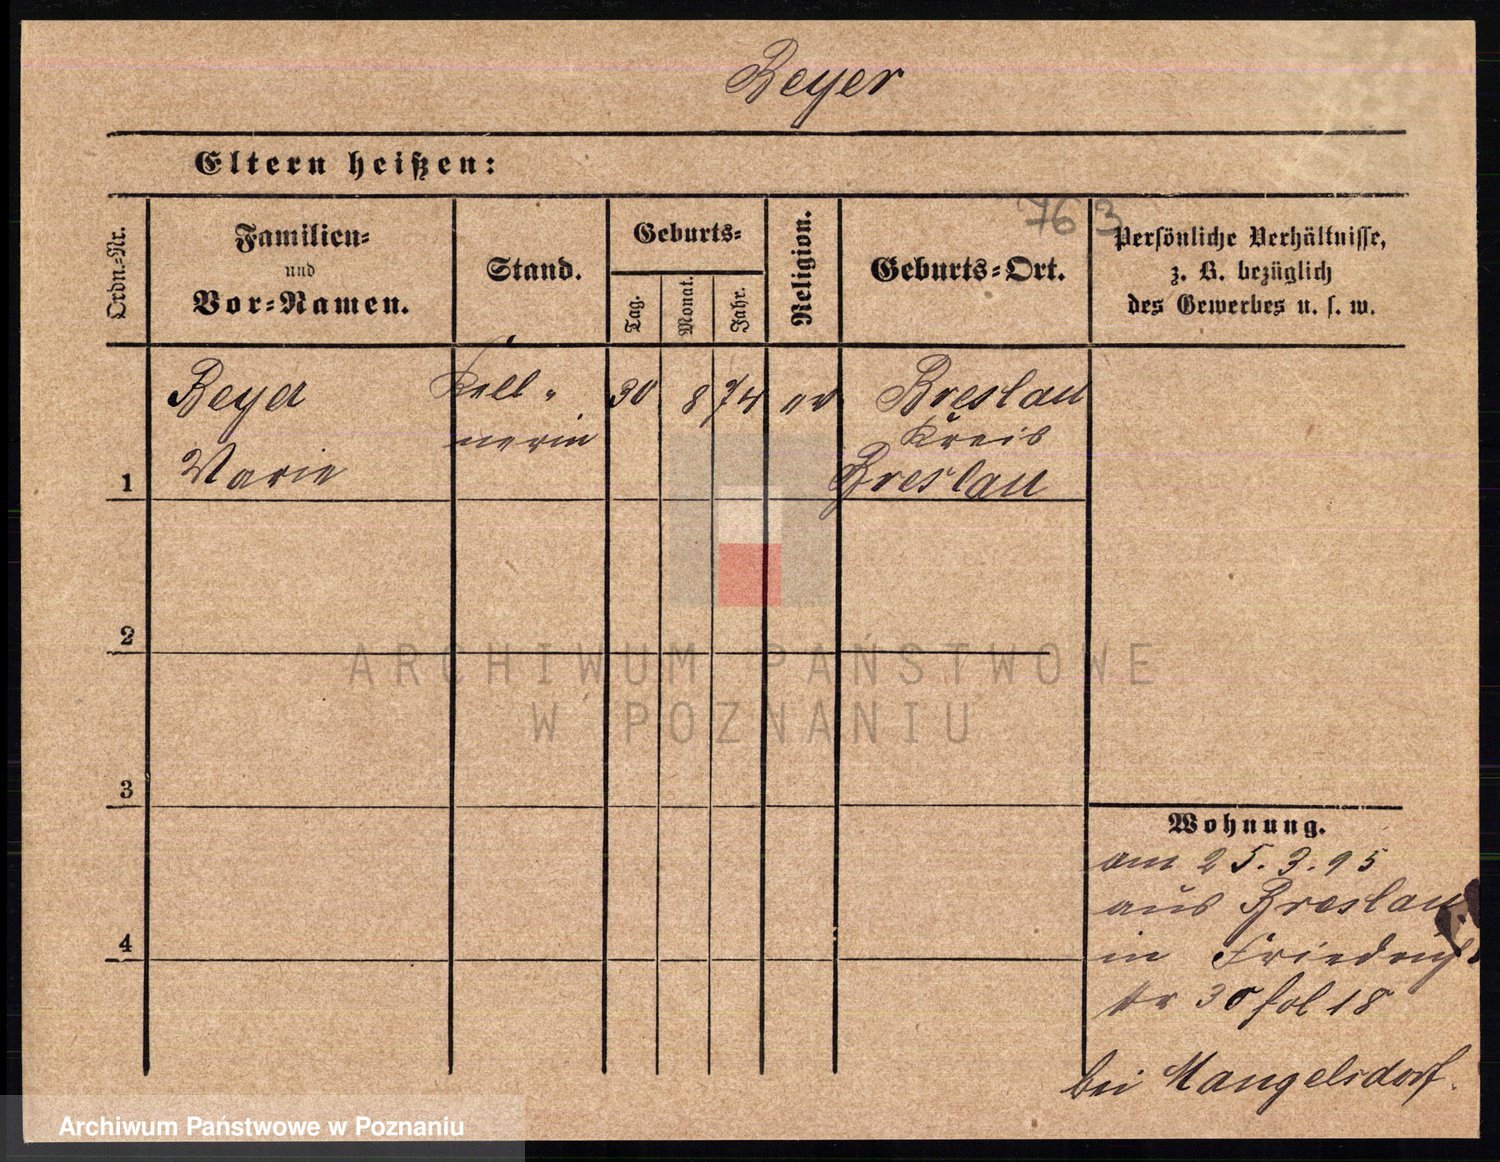 Beyer
Eltern heißen:
763
Ordn.-Nr.
Familien-
und
Vor-Namen.
Stand.
Geburts-
Tag.
Monat.
Jahr.
Religion.
Geburts-Ort.
Persönliche Verhältnisse,
z. B. bezüglich
des Gewerbes u. s. w.
1
Beyer
Marie
Kell-
nerin
30
8
74
ev
Breslau
Kreis
Breslau
2
3
4
Wohnung.
am 25.3.95
aus Breslau
in Friedrich
str 30 fol 18
bei Mangelsdorf.
ARCHIWUM PAŃSTWOWE
W POZNANIU
Archiwum Państwowe w Poznaniu